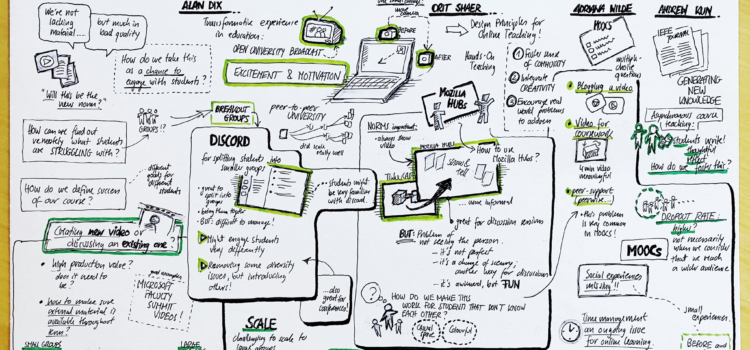 We're not
lacking
material....
but much in
bad quality
"Will this be the
new norm?"
How do we take this
as a chance to
engage with students?
How can we find out
remotely what students
are STRUGGLING with?
GROUPS!?
How do we define success
of our course?
different
goals for
different
students
Creating new video or
discussing an existing one?
• high production value?
does it need to
be?
• how to make sure
external material is
available throughout
term?
good examples:
MICROSOFT
FACULTY
SUMMIT
VIDEOS!
SMALL GROUPS
LARGE
ALAN DIX
Transformative experience
in education:
OPEN UNIVERSITY BROADCAST
EXCITEMENT & MOTIVATION
BREAKOUT
GROUPS
peer-to-peer
UNIVERSITY
did scale
really well
DISCORD
for splitting students into
smaller groups
• great to
split into
groups
• bring them together
BUT: difficult to manage!
Might engage students
very differently
Removing some diversity
issues, but introducing
others!
students might
be very familiar
with discord.
...also
great for
conferences!
SCALE
challenging to scale
to large groups
BEFORE
AFTER
ORIT SHAER
Design Principles for
Online Teaching!
Hands-On
Teaching
1 Foster sense
of COMMUNITY
2 Integrate
CREATIVITY
3 Encourage real
world problems
to address
MOZILLA
HUBS
NORMS important:
- always show
video
MOZILLA HUBS
show &
tell
How to use
Mozilla Hubs?
... more informal
great for discussion sessions
BUT: Problem of
not seeing the person.
- it's not perfect
- it's a change of scenery,
another way for discussions
- it's awkward, but FUN
HOW DO WE MAKE THIS
WORK FOR STUDENTS THAT DON'T KNOW
EACH OTHER?
Casual
space
Colourful
ADRIANA WILDE
MOOCS
multiple-
choice
questions
• Blogging a video
• Video for
coursework
4 min video
meaningful
• peer-support
• this problem
is very common
in MOOCs!
MOOCs
Social experiences
missing!!
Time management
an ongoing issue
for online learning.
small
experiences
BEFORE and
ANDREW KUN
IEEE
GENERATING
NEW
KNOWLEDGE
Asynchronous course
teaching:
Students write!
thoughtful
reflect
How do we foster this?
DROPOUT RATE
higher?
not necessarily
when we consider
that we reach
a wider audience